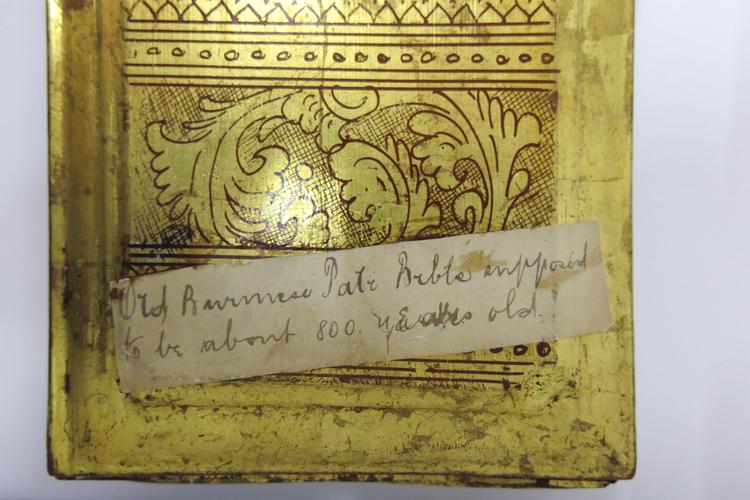 Old Burmese Pali Bible supposed
to be about 800. years old.